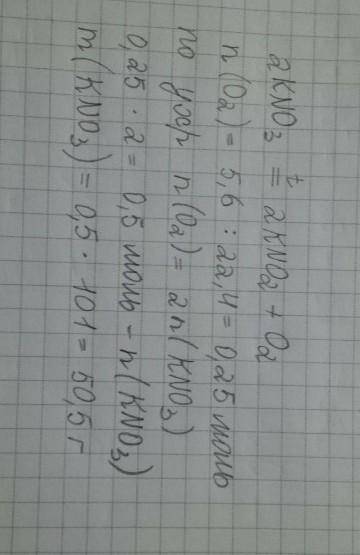 2KNO3 t= 2KNO2 + O2
n(O2) = 5,6 : 22,4 = 0,25 моль
по ухр n(O2) = 2n(KNO3)
0,25 · 2 = 0,5 моль - n(KNO3)
m(KNO3) = 0,5 · 101 = 50,5 г